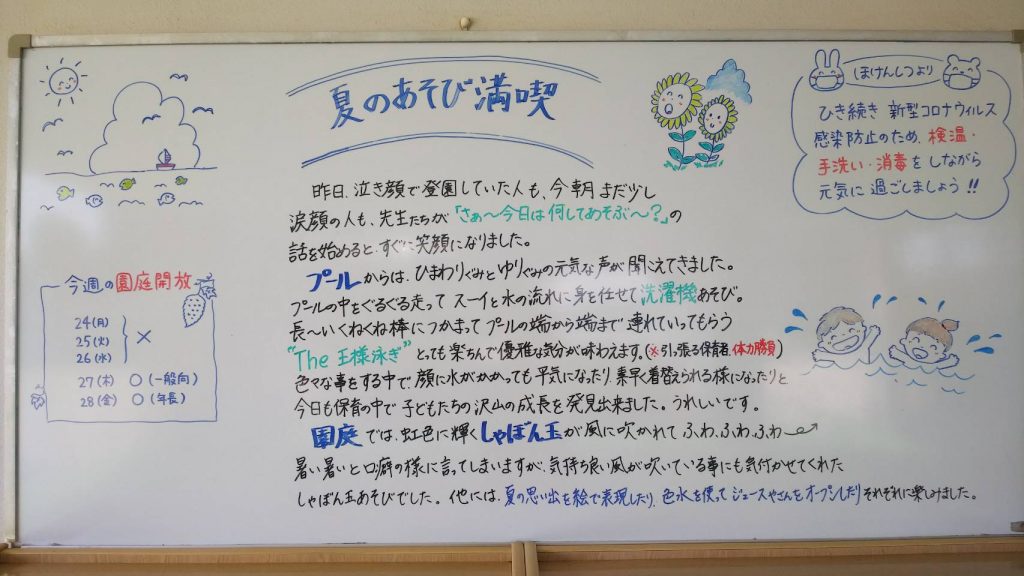 夏のあそび満喫
昨日、泣き顔で登園していた人も、今朝まだ少し
涙顔の人も、先生たちが「さぁ〜今日は何してあそぶ〜？」の
話を始めると、すぐに笑顔になりました。
プールからは、ひまわりぐみとゆりぐみの元気な声が聞こえてきました。
プールの中をぐるぐる走って スーイと水の流れに身を任せて洗濯機あそび。
長〜いくねくね棒につかまって プールの端から端まで 連れていってもらう
"The 王様泳ぎ" とっても楽ちんで優雅な気分が味わえます。(※引っ張る保育者、体力勝負)
色々な事をする中で、顔に水がかかっても平気になったり、素早く着替えられる様になったりと
今日も保育の中で 子どもたちの沢山の成長を発見出来ました。うれしいです。
園庭では、虹色に輝くしゃぼん玉が風に吹かれて ふわ、ふわ、ふわ
暑い暑いと口癖の様に言ってしまいますが、気持ち良い風が吹いている事にも気付かせてくれた
しゃぼん玉あそびでした。他には、夏の思い出を絵で表現したり、色水を使ってジュースやさんをオープンしたり それぞれに楽しみました。
ほけんしつより
ひき続き 新型コロナウィルス
感染防止のため、検温・
手洗い・消毒をしながら
元気に過ごしましょう!!
今週の園庭開放
24(月)
25(火) ×
26(水)
27(木) ○(一般向)
28(金) ○(年長)